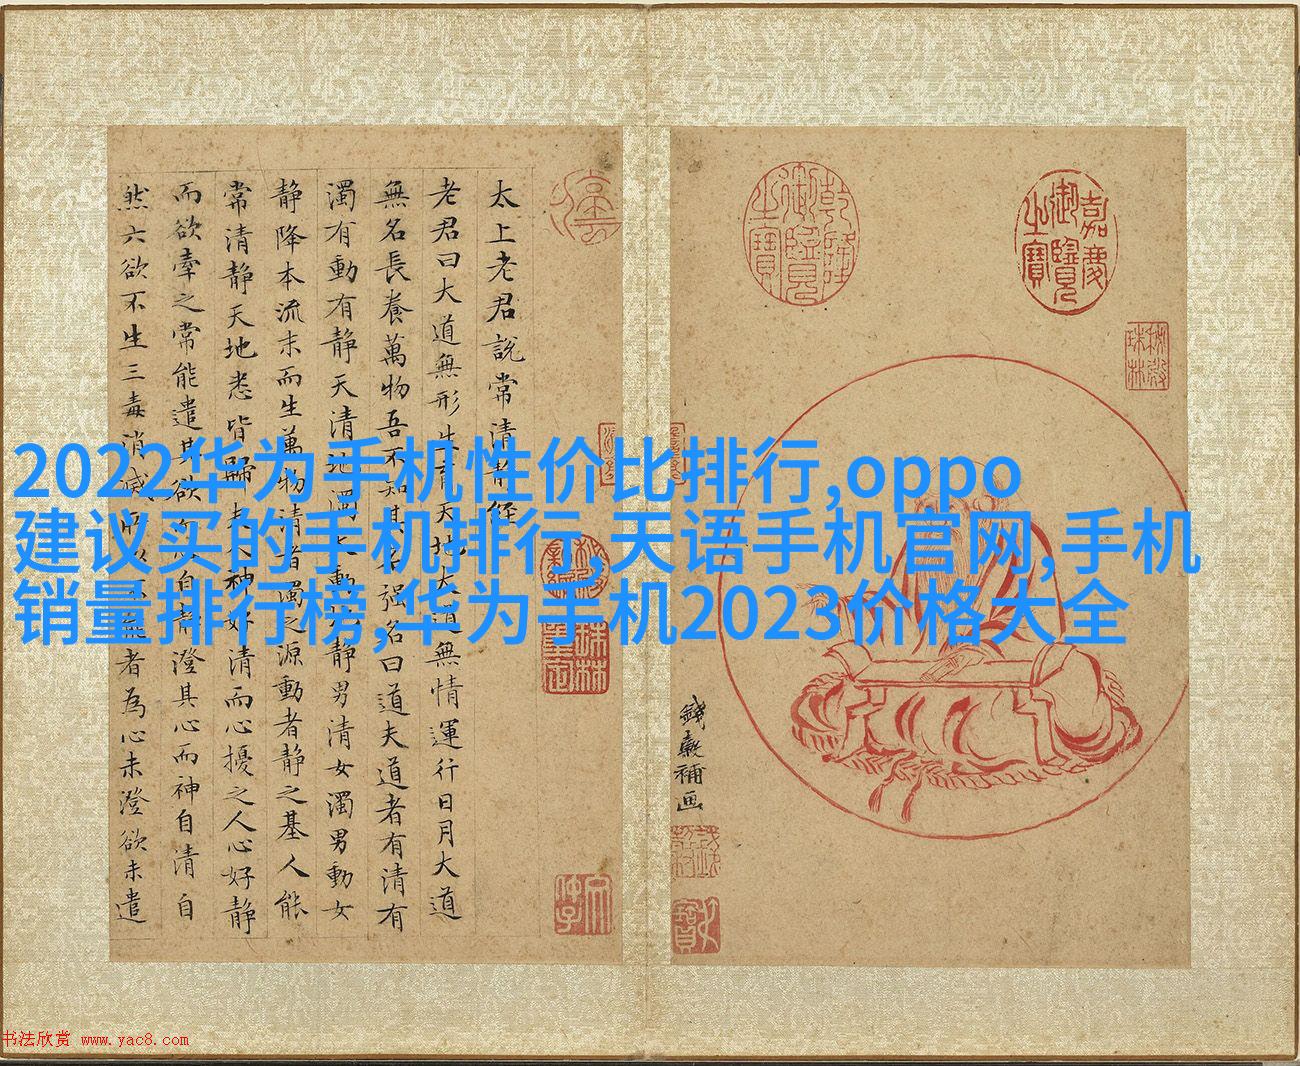 2022华为手机性价比排行,oppo
建议买的手机排行,天语手机官网,手机
销量排行榜,华为手机2023价格大全
乾隆御覽之寶
嘉慶御覽之寶
錢穀補画
太上老君說常清静經
老君曰大道無形生育天地大道無情運行日月大道
無名長養萬物吾不知其名强名曰道夫道者有清有
濁有動有静天清地濁天動地静男清女濁男動女
静降本流末而生萬物清者濁之源動者静之基人能
常清静天地悉皆歸夫人神好清而心擾之人心好静
而欲牽之常能遣其欲而心自静澄其心而神自清自
然六欲不生三毒消滅所以不能者為心未澄欲未遣
书法欣赏 www.yac8.com